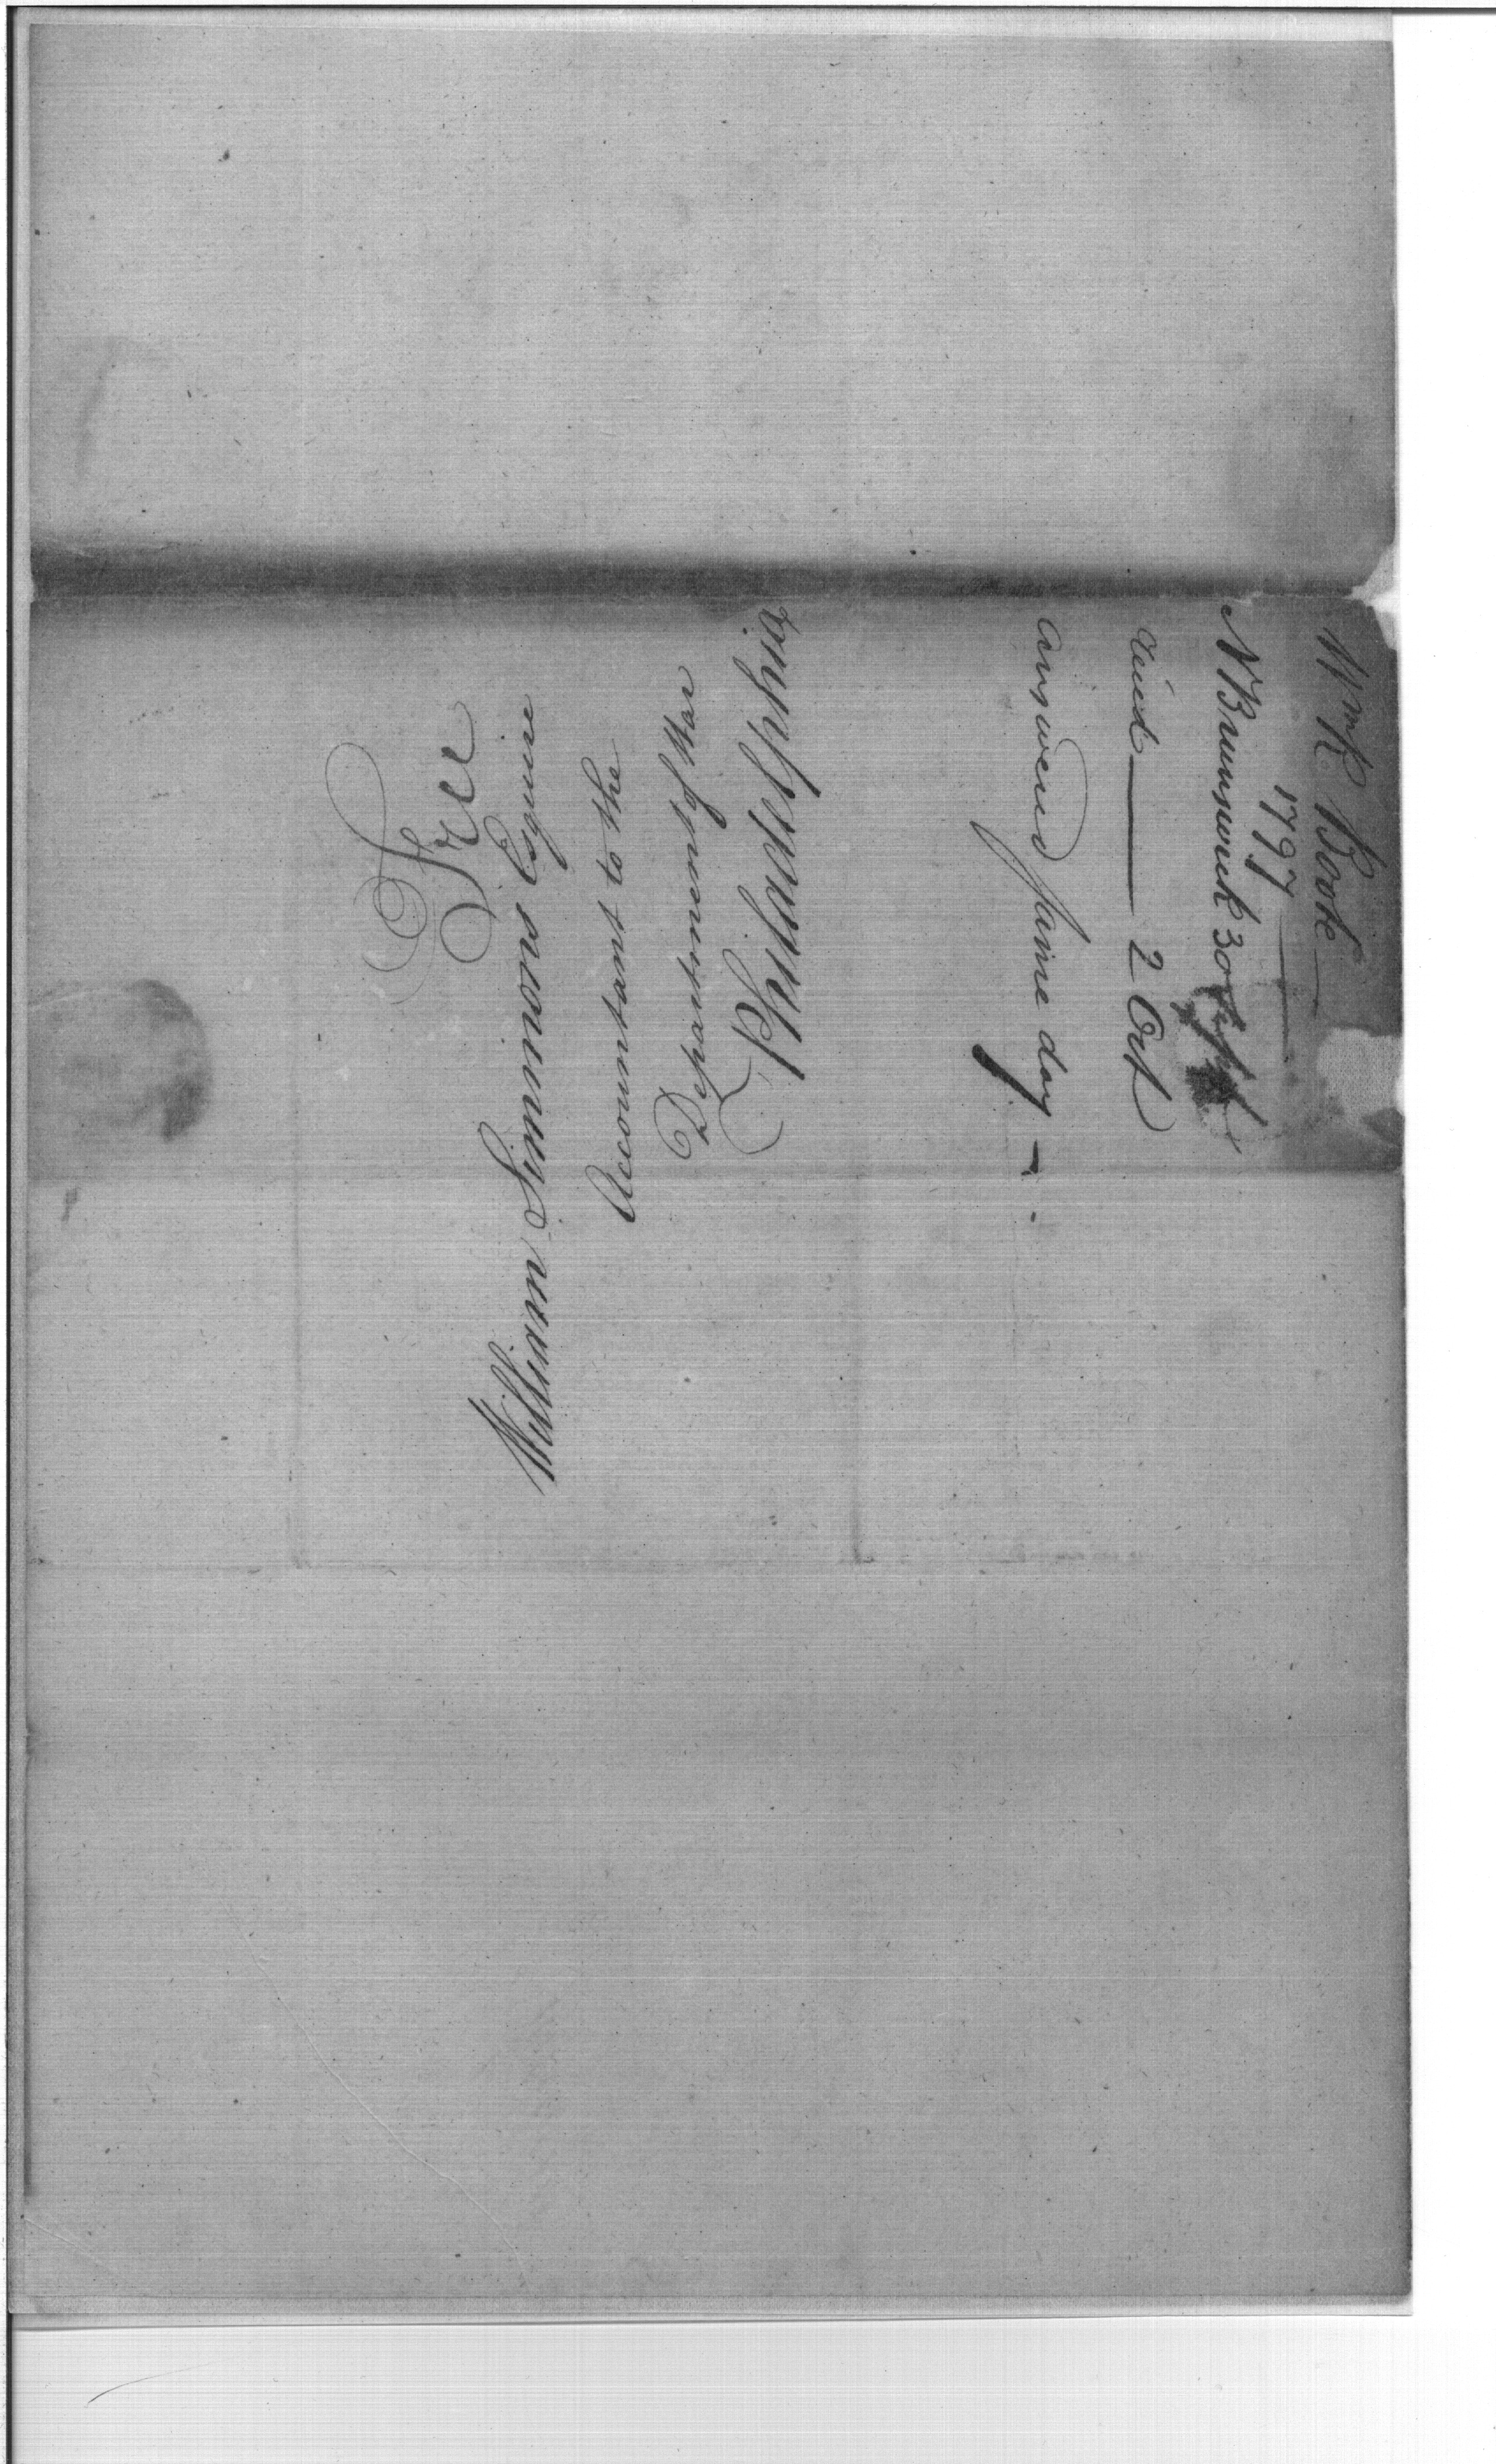 Free
William Simmons Esquire
Accountant to the
Department of War
Philadelphia
Wm R. Boote
1797
NBrunswick 30 Sept
recd 2 Oct
answered same day